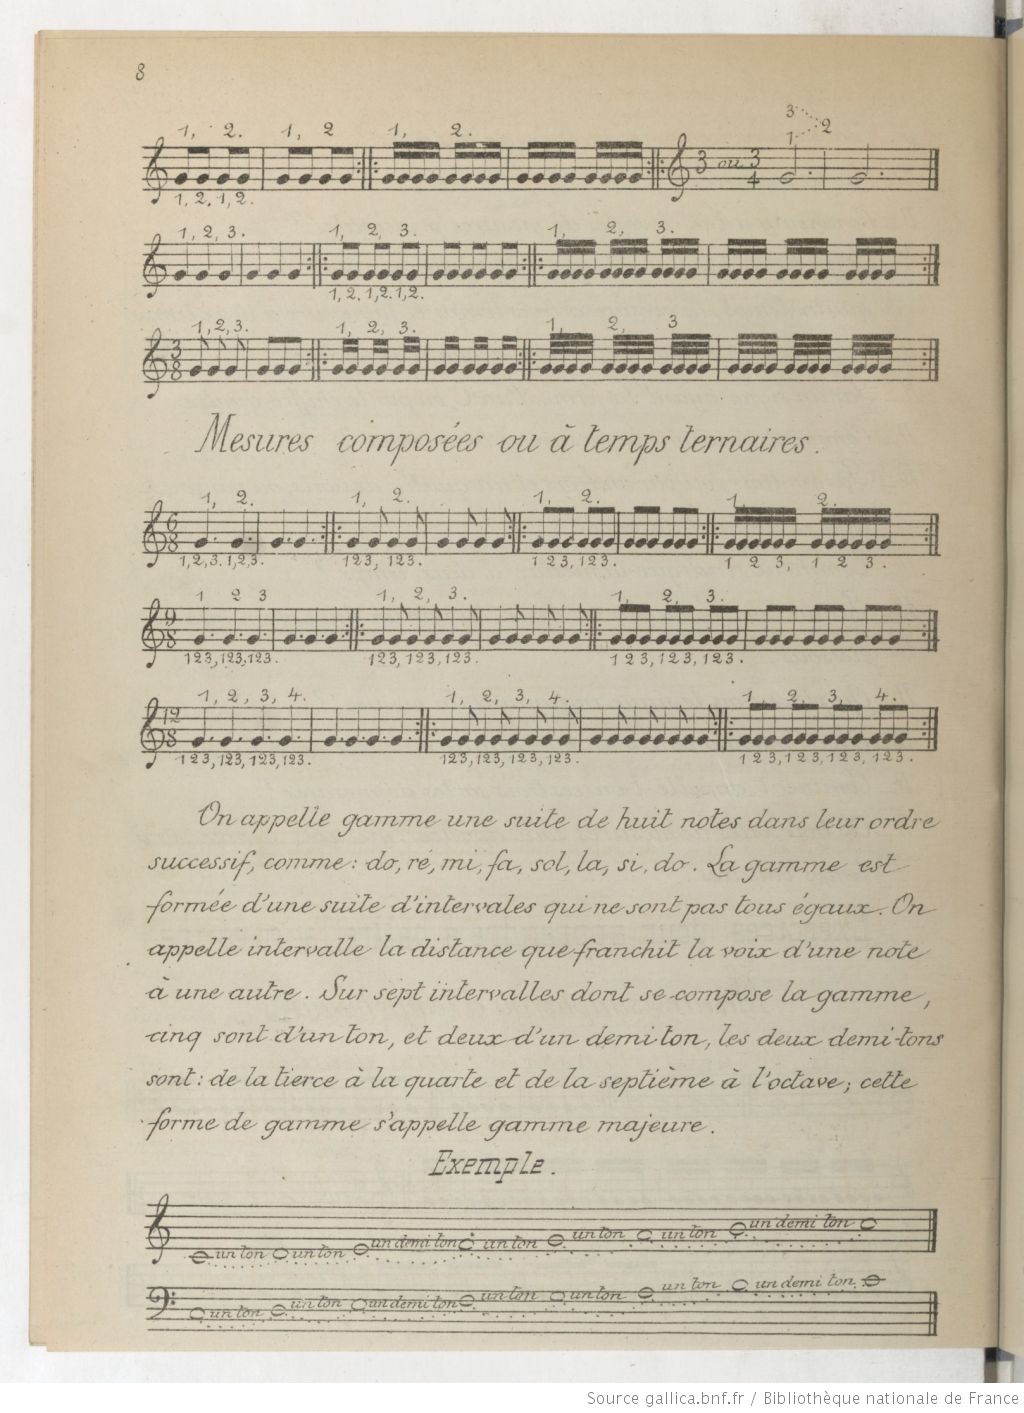 8
1, 2. 1, 2 1, 2. 3 1 2
3 ou 3 4
1, 2, 1, 2.
1, 2, 3. 1, 2, 3. 1, 2, 3.
1, 2. 1, 2. 1, 2.
1, 2, 3. 1, 2, 3. 1, 2, 3
3 8
Mesures composées ou à temps ternaires.
1, 2. 1, 2. 1, 2. 1, 2.
6 8
1, 2, 3. 1, 2, 3. 1 2 3, 1 2 3. 1 2 3, 1 2 3. 1 2 3, 1 2 3.
1 2 3 1, 2, 3. 1, 2, 3.
9 8
1 2 3, 1 2 3, 1 2 3. 1 2 3, 1 2 3, 1 2 3. 1 2 3, 1 2 3, 1 2 3.
1, 2, 3, 4. 1, 2, 3, 4. 1, 2, 3, 4.
12 8
1 2 3, 1 2 3, 1 2 3, 1 2 3. 1 2 3, 1 2 3, 1 2 3, 1 2 3. 1 2 3, 1 2 3, 1 2 3, 1 2 3.
On appelle gamme une suite de huit notes dans leur ordre
successif, comme: do, ré, mi, fa, sol, la, si, do. La gamme est
formée d'une suite d'intervales qui ne sont pas tous égaux. On
appelle intervalle la distance que franchit la voix d'une note
à une autre. Sur sept intervalles dont se compose la gamme,
cinq sont d'un ton, et deux d'un demi ton, les deux demi-tons
sont: de la tierce à la quarte et de la septième à l'octave; cette
forme de gamme s'appelle gamme majeure.
Exemple.
un ton un ton un demi ton un ton un ton un ton un demi ton
un ton un ton un demi ton un ton un ton un ton un demi ton
Source gallica.bnf.fr / Bibliothèque nationale de France